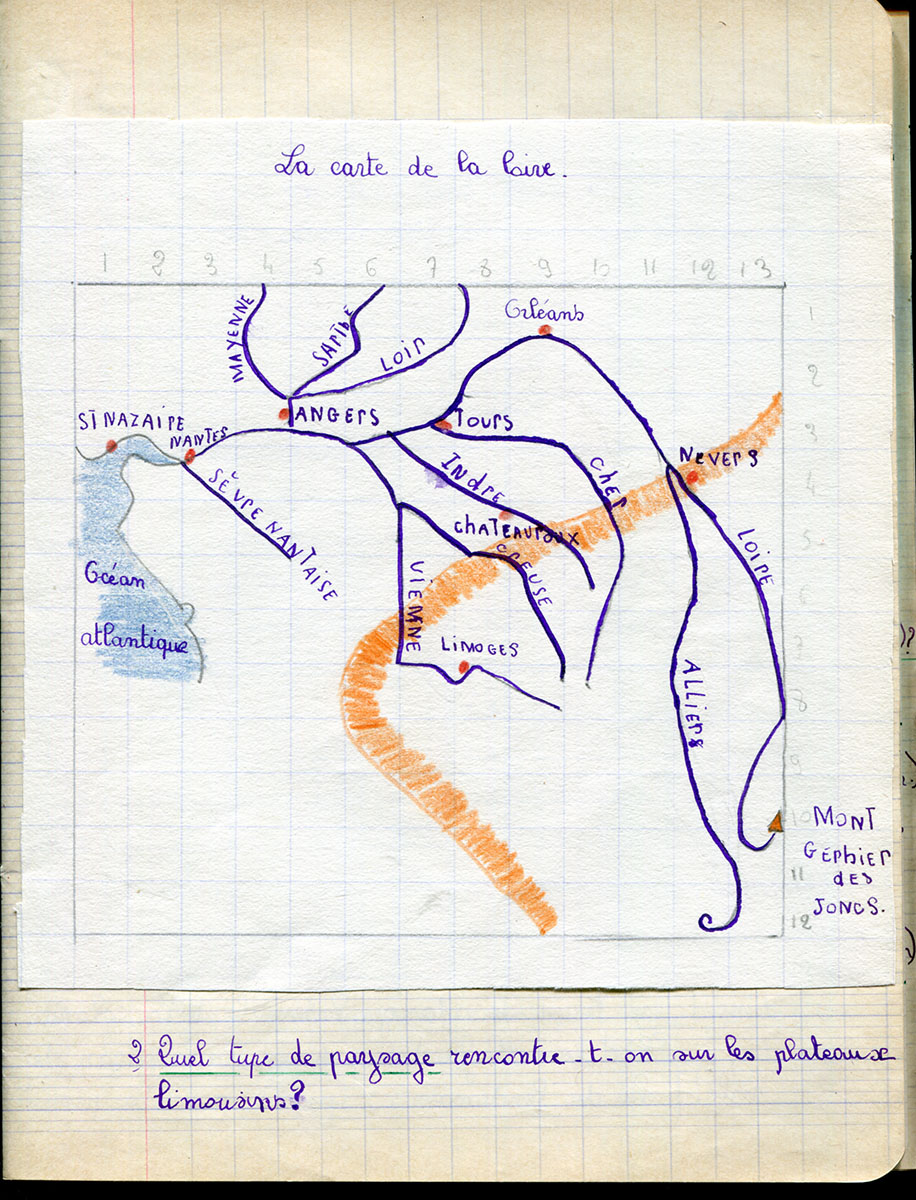 La carte de la loire.
1 2 3 4 5 6 7 8 9 10 11 12 13
Orléans
1
MAYENNE
SARTHE
LOIR
2
ANGERS
TOURS
ST NAZAIRE
3
NANTES
NEVERS
INDRE
CHER
4
SÈVRE NANTAISE
CHATEAUROUX
5
LOIRE
CREUSE
Océan
VIENNE
atlantique
LIMOGES
7
8
ALLIERS
9
10
MONT
GERBIER
11
DES
JONCS.
12
2 Quel type de paysage rencontre-t-on sur les plateaux
limousins?